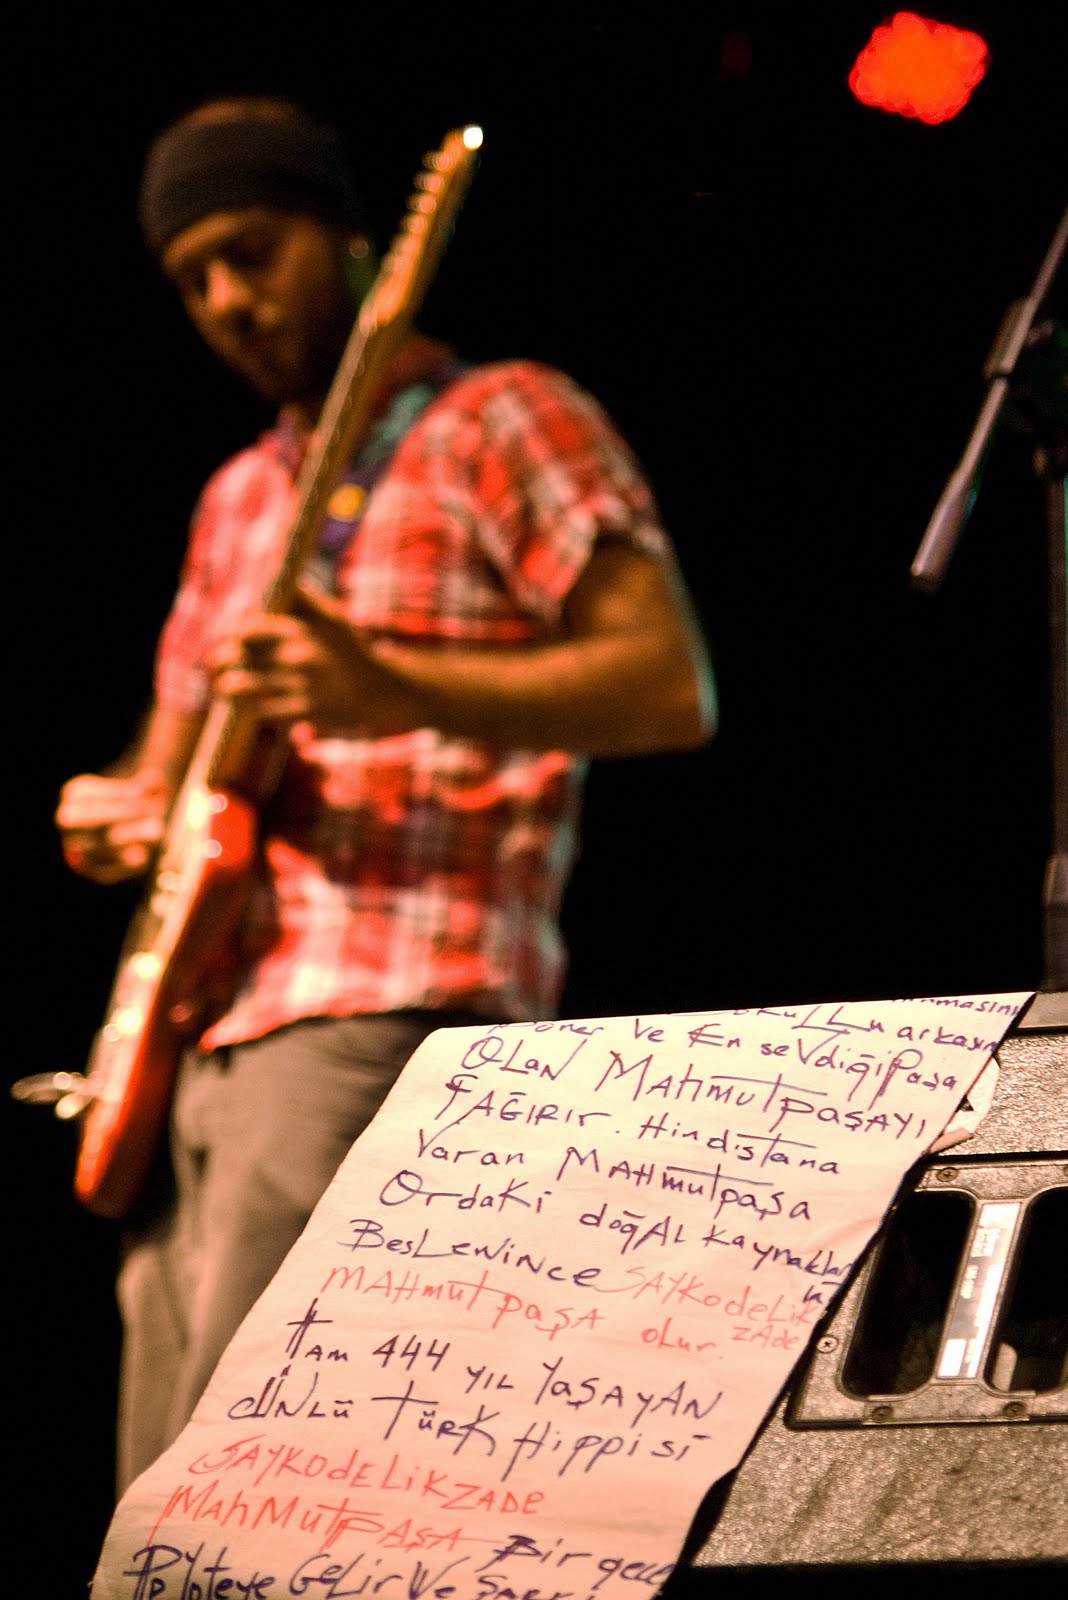 Döner Ve En sevdiği Paşa
OLAN MAHmutpaşAYI
ÇAĞIRIr. Hindistana
Varan MAHmutpaşa
Ordaki doğAL kaynaklar
BesLenince SAYKodeLik
MAHmut paşA oLur. ZAde
TAm 444 yıL YAŞAyAN
ÜNLü TürK Hippisi
SAYKOdELiKZADE
MAhMutPAŞA Bir gece
GeLir Ve